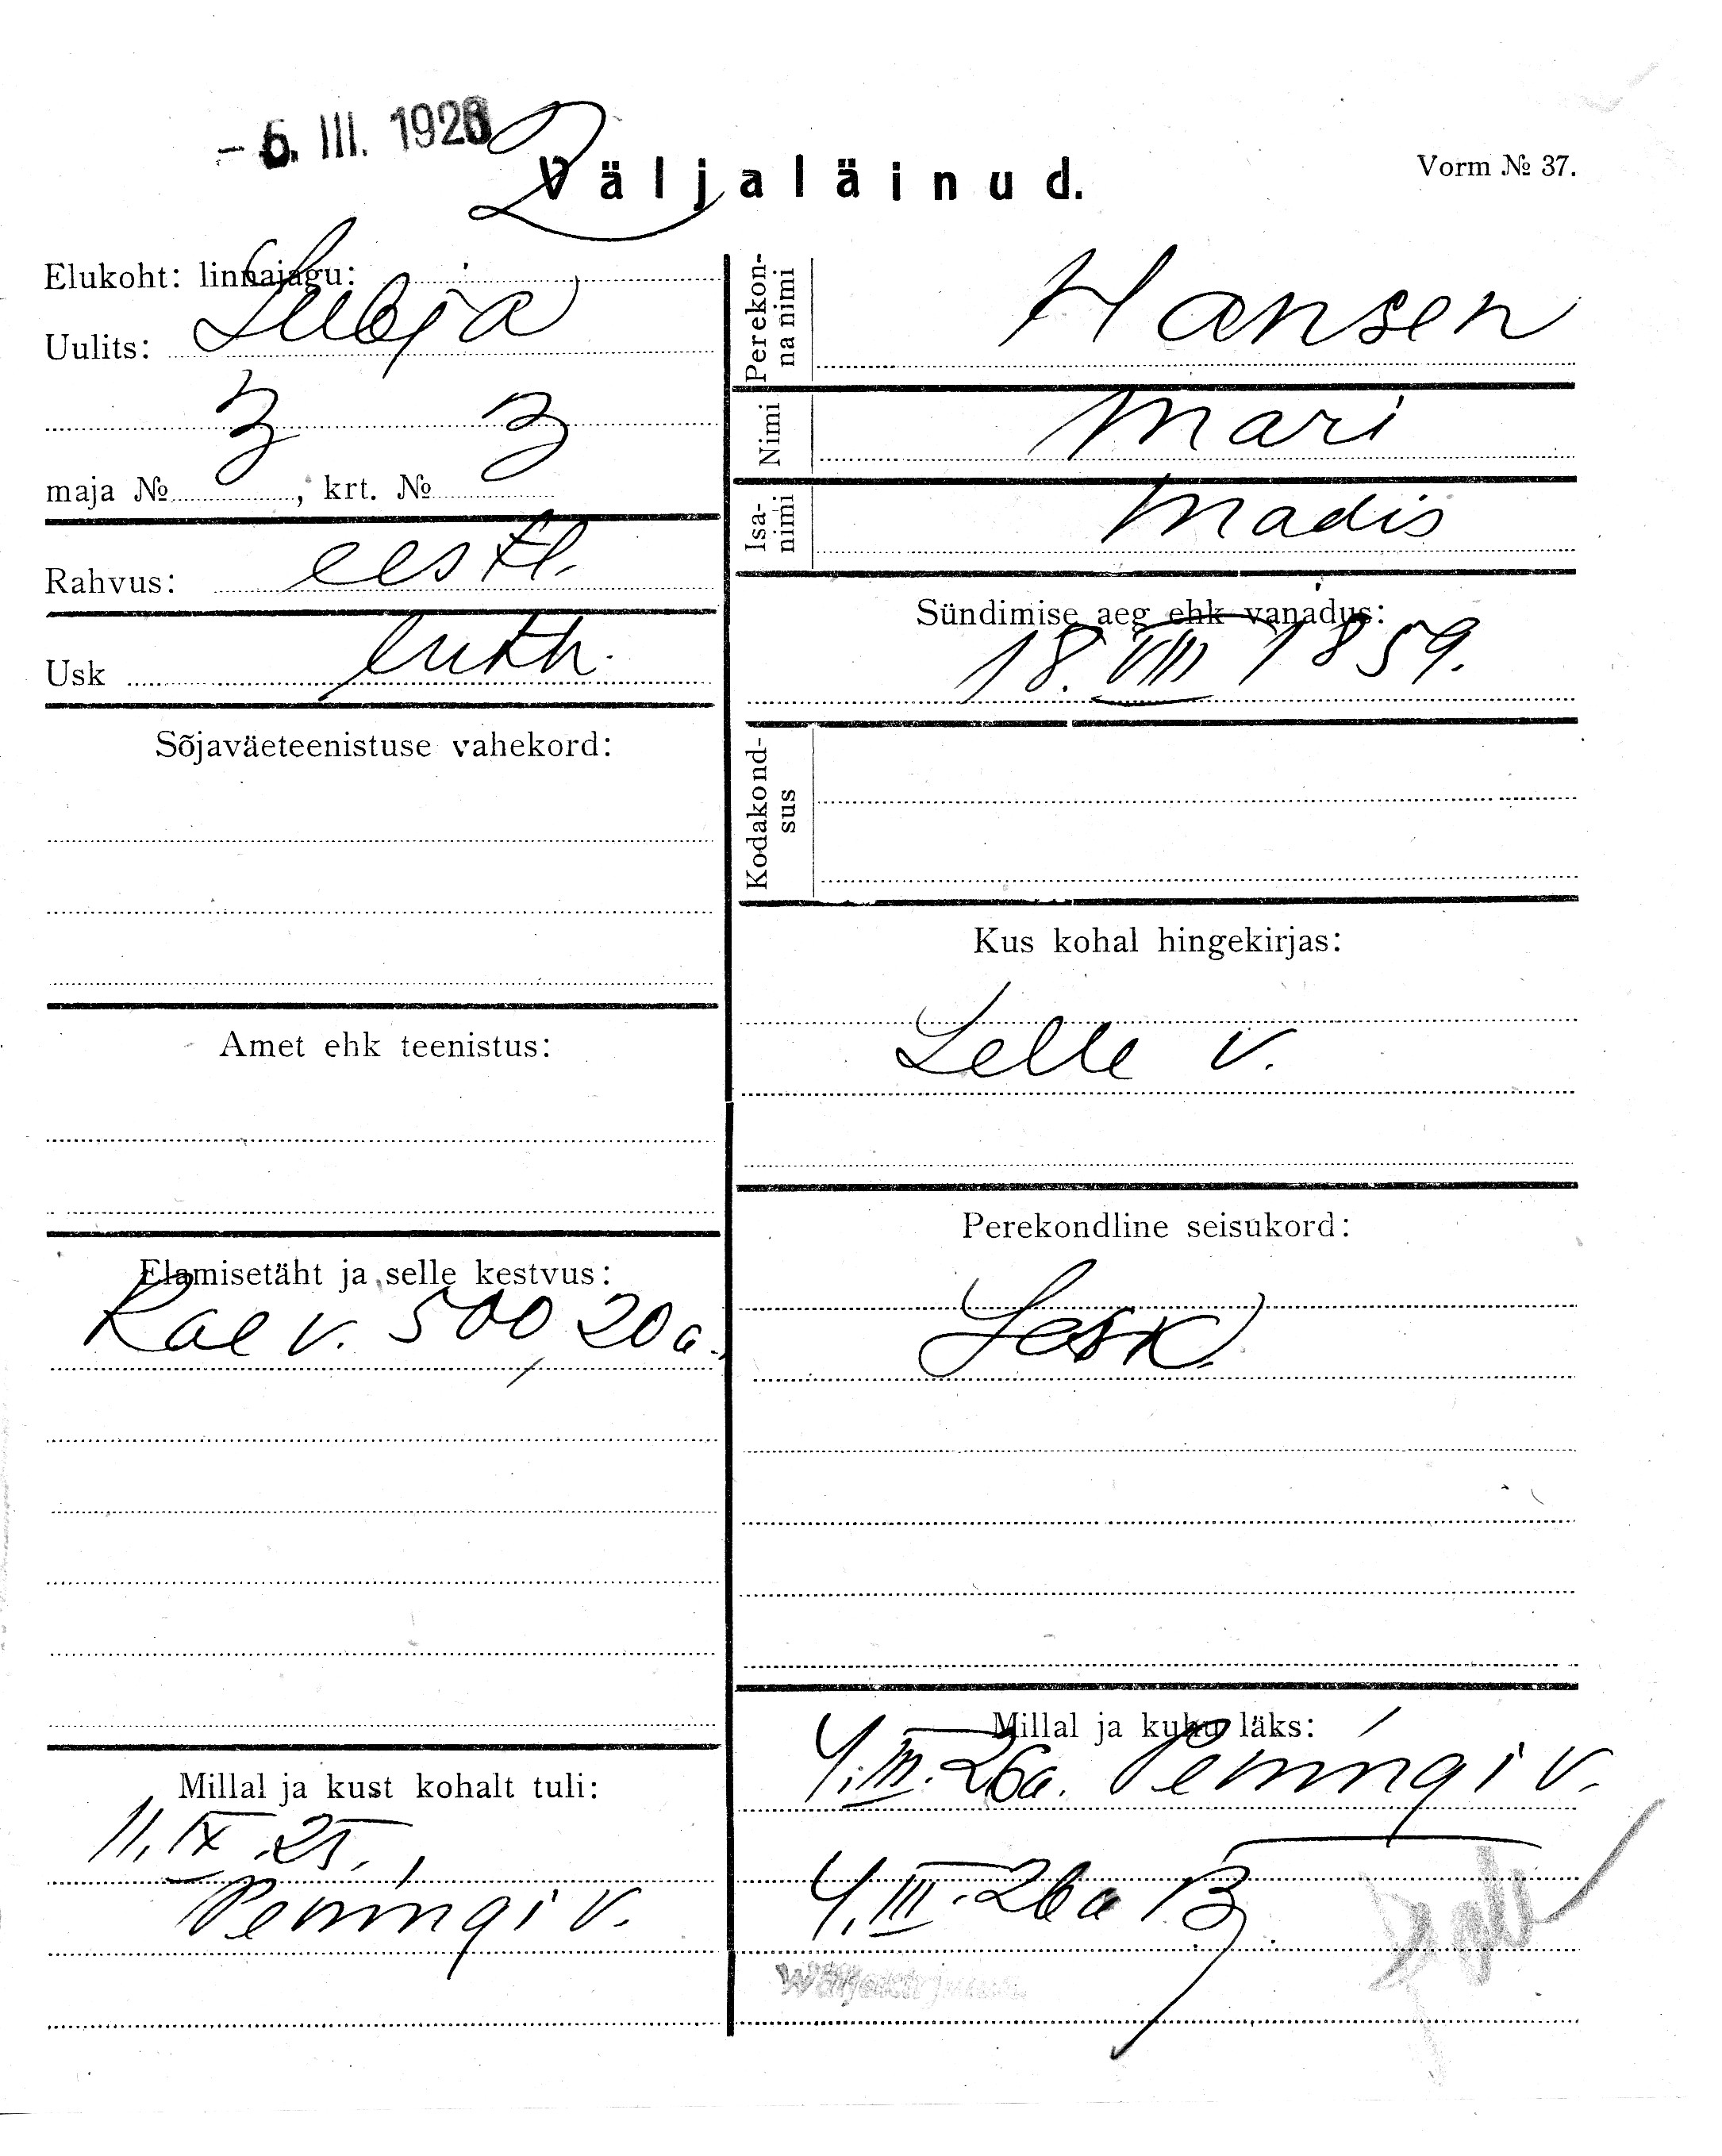 - 6. III. 1926
Väljaläinud.
Vorm № 37.
Elukoht: linnajagu:
Uulits: Lubja
3 3
maja № , krt. №
Rahvus: eestl.
Usk luth.
Sõjaväeteenistuse vahekord:
Amet ehk teenistus:
Elamisetäht ja selle kestvus:
Rae v. 500, 20 a.
Millal ja kust kohalt tuli:
11. IX. 25.
Peningi v.
Perekonna nimi Hansen
Nimi Mari
Isanimi Madis
Sündimise aeg ehk vanadus:
18. VIII 1859.
Kodakondsus
Kus kohal hingekirjas:
Lelle v.
Perekondline seisukord:
Lesk.
Millal ja kuhu läks:
4. III. 26 a. Peningi v.
4. III. 26 a